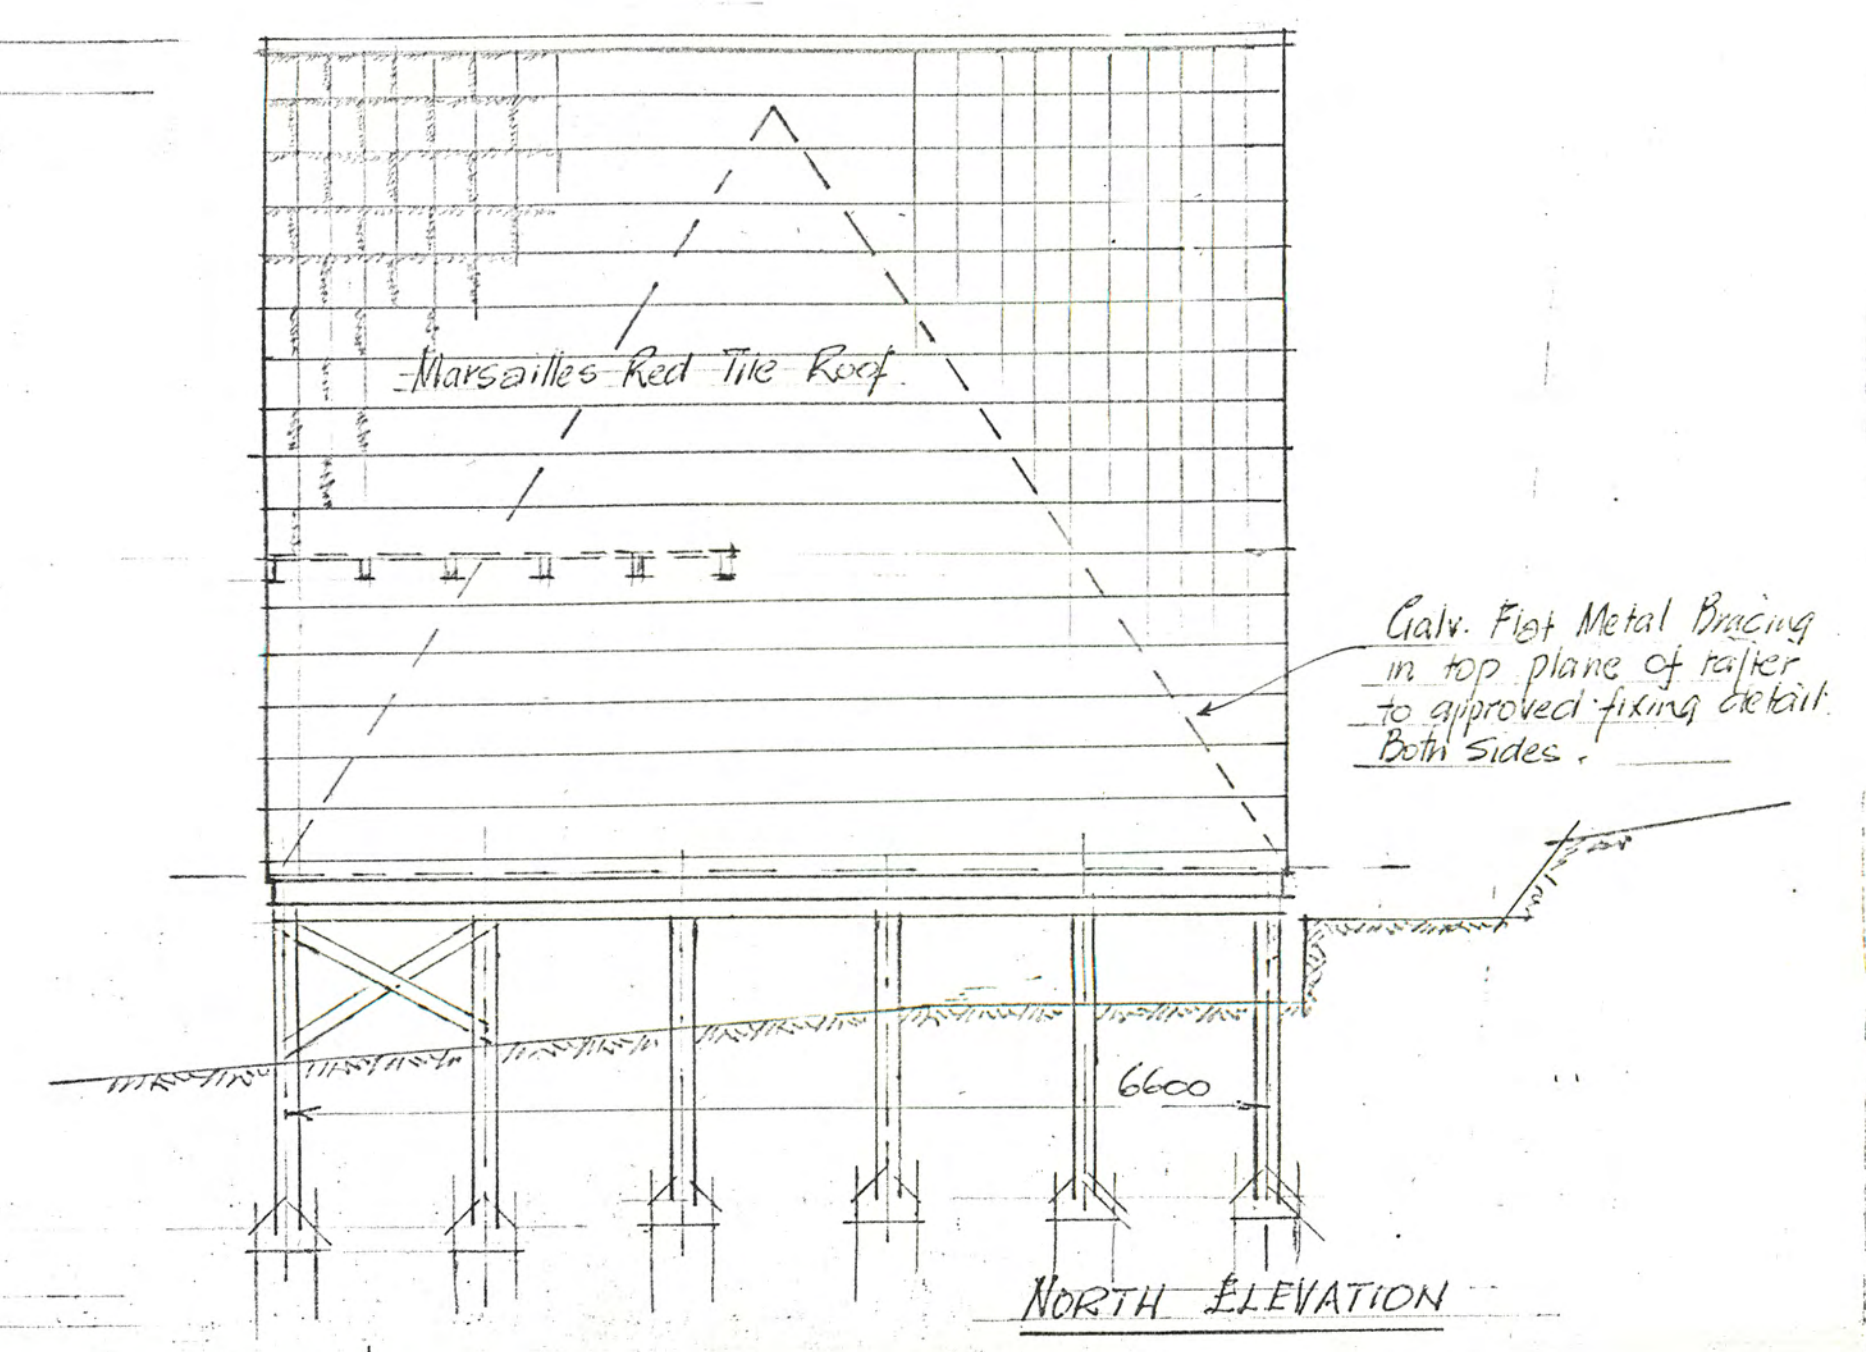 Marsailles Red Tile Roof
Galv. Flat Metal Bracing
in top plane of rafter
to approved fixing detail.
Both Sides.
6600
NORTH ELEVATION